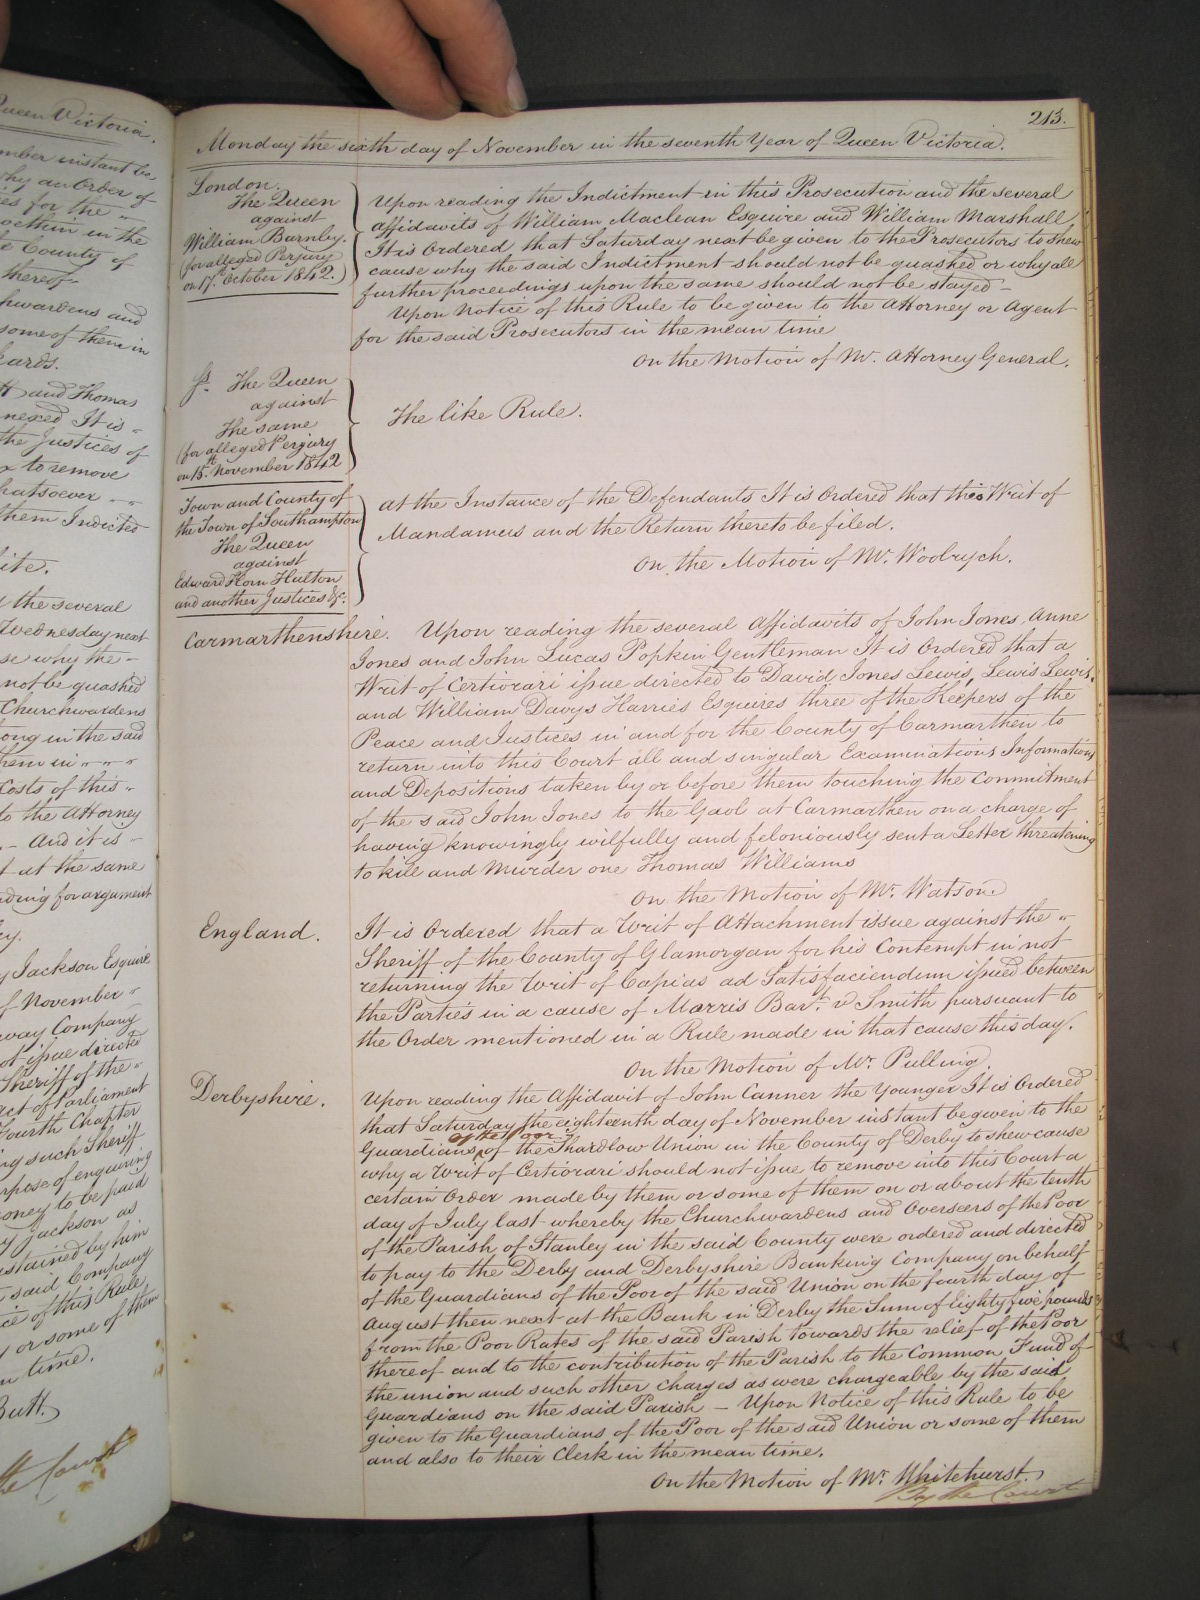 Queen Victoria.
mber instant be
why an Order of
es for the
within in the
e County of
thereof
hwardens and
some of them in
cards.
tt and Thomas
nexed It is
the Justices of
x to remove
hatsoever
them Indicted
ite.
y the several
Wednesday next
se why the
not be quashed
Churchwardens
ong in the said
hem in
Costs of this
to the Attorney
And it is
t at the same
ding for argument
cy.
y Jackson Esquire
f November
way Company
ot issue directed
Sheriff of the
act of Parliament
Fourth Chapter
ng such Sheriff
rpose of enquiring
oney to be paid
y Jackson as
stained by him
said Company
ice of this Rule
y or some of them
n time.
Butt.
the Court
213.
Monday the sixth day of November in the seventh Year of Queen Victoria.
London.
The Queen
against
William Barnby.
(for alleged Perjury
on 17th October 1842.)
Upon reading the Indictment in this Prosecution and the several
affidavits of William Maclean Esquire and William Marshall
It is Ordered that Saturday next be given to the Prosecutors to shew
cause why the said Indictment should not be quashed or why all
further proceedings upon the same should not be stayed -
Upon Notice of this Rule to be given to the Attorney or Agent
for the said Prosecutors in the mean time
On the Motion of Mr. Attorney General.
Js. The Queen
against
The same
(for alleged Perjury
on 15th November 1842
The like Rule.
Town and County of
the Town of Southampton
The Queen
against
Edward Horn Hulton
and another Justices &c.
At the Instance of the Defendants It is Ordered that this Writ of
Mandamus and the Return thereto be filed.
On the Motion of Mr. Woolrych.
Carmarthenshire. Upon reading the several Affidavits of John Jones Anne
Jones and John Lucas Popkin Gentleman It is Ordered that a
Writ of Certiorari issue directed to David Jones Lewis, Lewis Lewis,
and William Davys Harries Esquires three of the Keepers of the
Peace and Justices in and for the County of Carmarthen to
return into this Court all and singular Examinations Informations
and Depositions taken by or before them touching the Commitment
of the said John Jones to the Gaol at Carmarthen on a charge of
having knowingly wilfully and feloniously sent a Letter threatening
to kill and Murder one Thomas Williams
On the Motion of Mr. Watson.
England.
It is Ordered that a Writ of Attachment issue against the
Sheriff of the County of Glamorgan for his Contempt in not
returning the Writ of Capias ad Satisfaciendum issued between
the Parties in a cause of Morris Bart. v Smith pursuant to
the Order mentioned in a Rule made in that cause this day.
On the Motion of Mr. Pulling.
Derbyshire.
Upon reading the Affidavit of John Canner the Younger It is Ordered
that Saturday the eighteenth day of November instant be given to the
Guardians of the Poor of the Shardlow Union in the County of Derby to shew cause
why a Writ of Certiorari should not issue to remove into this Court a
certain Order made by them or some of them on or about the tenth
day of July last whereby the Churchwardens and Overseers of the Poor
of the Parish of Stanley in the said County were ordered and directed
to pay to the Derby and Derbyshire Banking Company on behalf
of the Guardians of the Poor of the said Union on the fourth day of
August then next at the Bank in Derby the Sum of Eighty five pounds
from the Poor Rates of the said Parish towards the relief of the Poor
thereof and to the contribution of the Parish to the Common Fund of
the union and such other charges as were chargeable by the said
Guardians on the said Parish - Upon Notice of this Rule to be
given to the Guardians of the Poor of the said Union or some of them
and also to their Clerk in the mean time.
On the Motion of Mr. Whitehurst.
By the Court